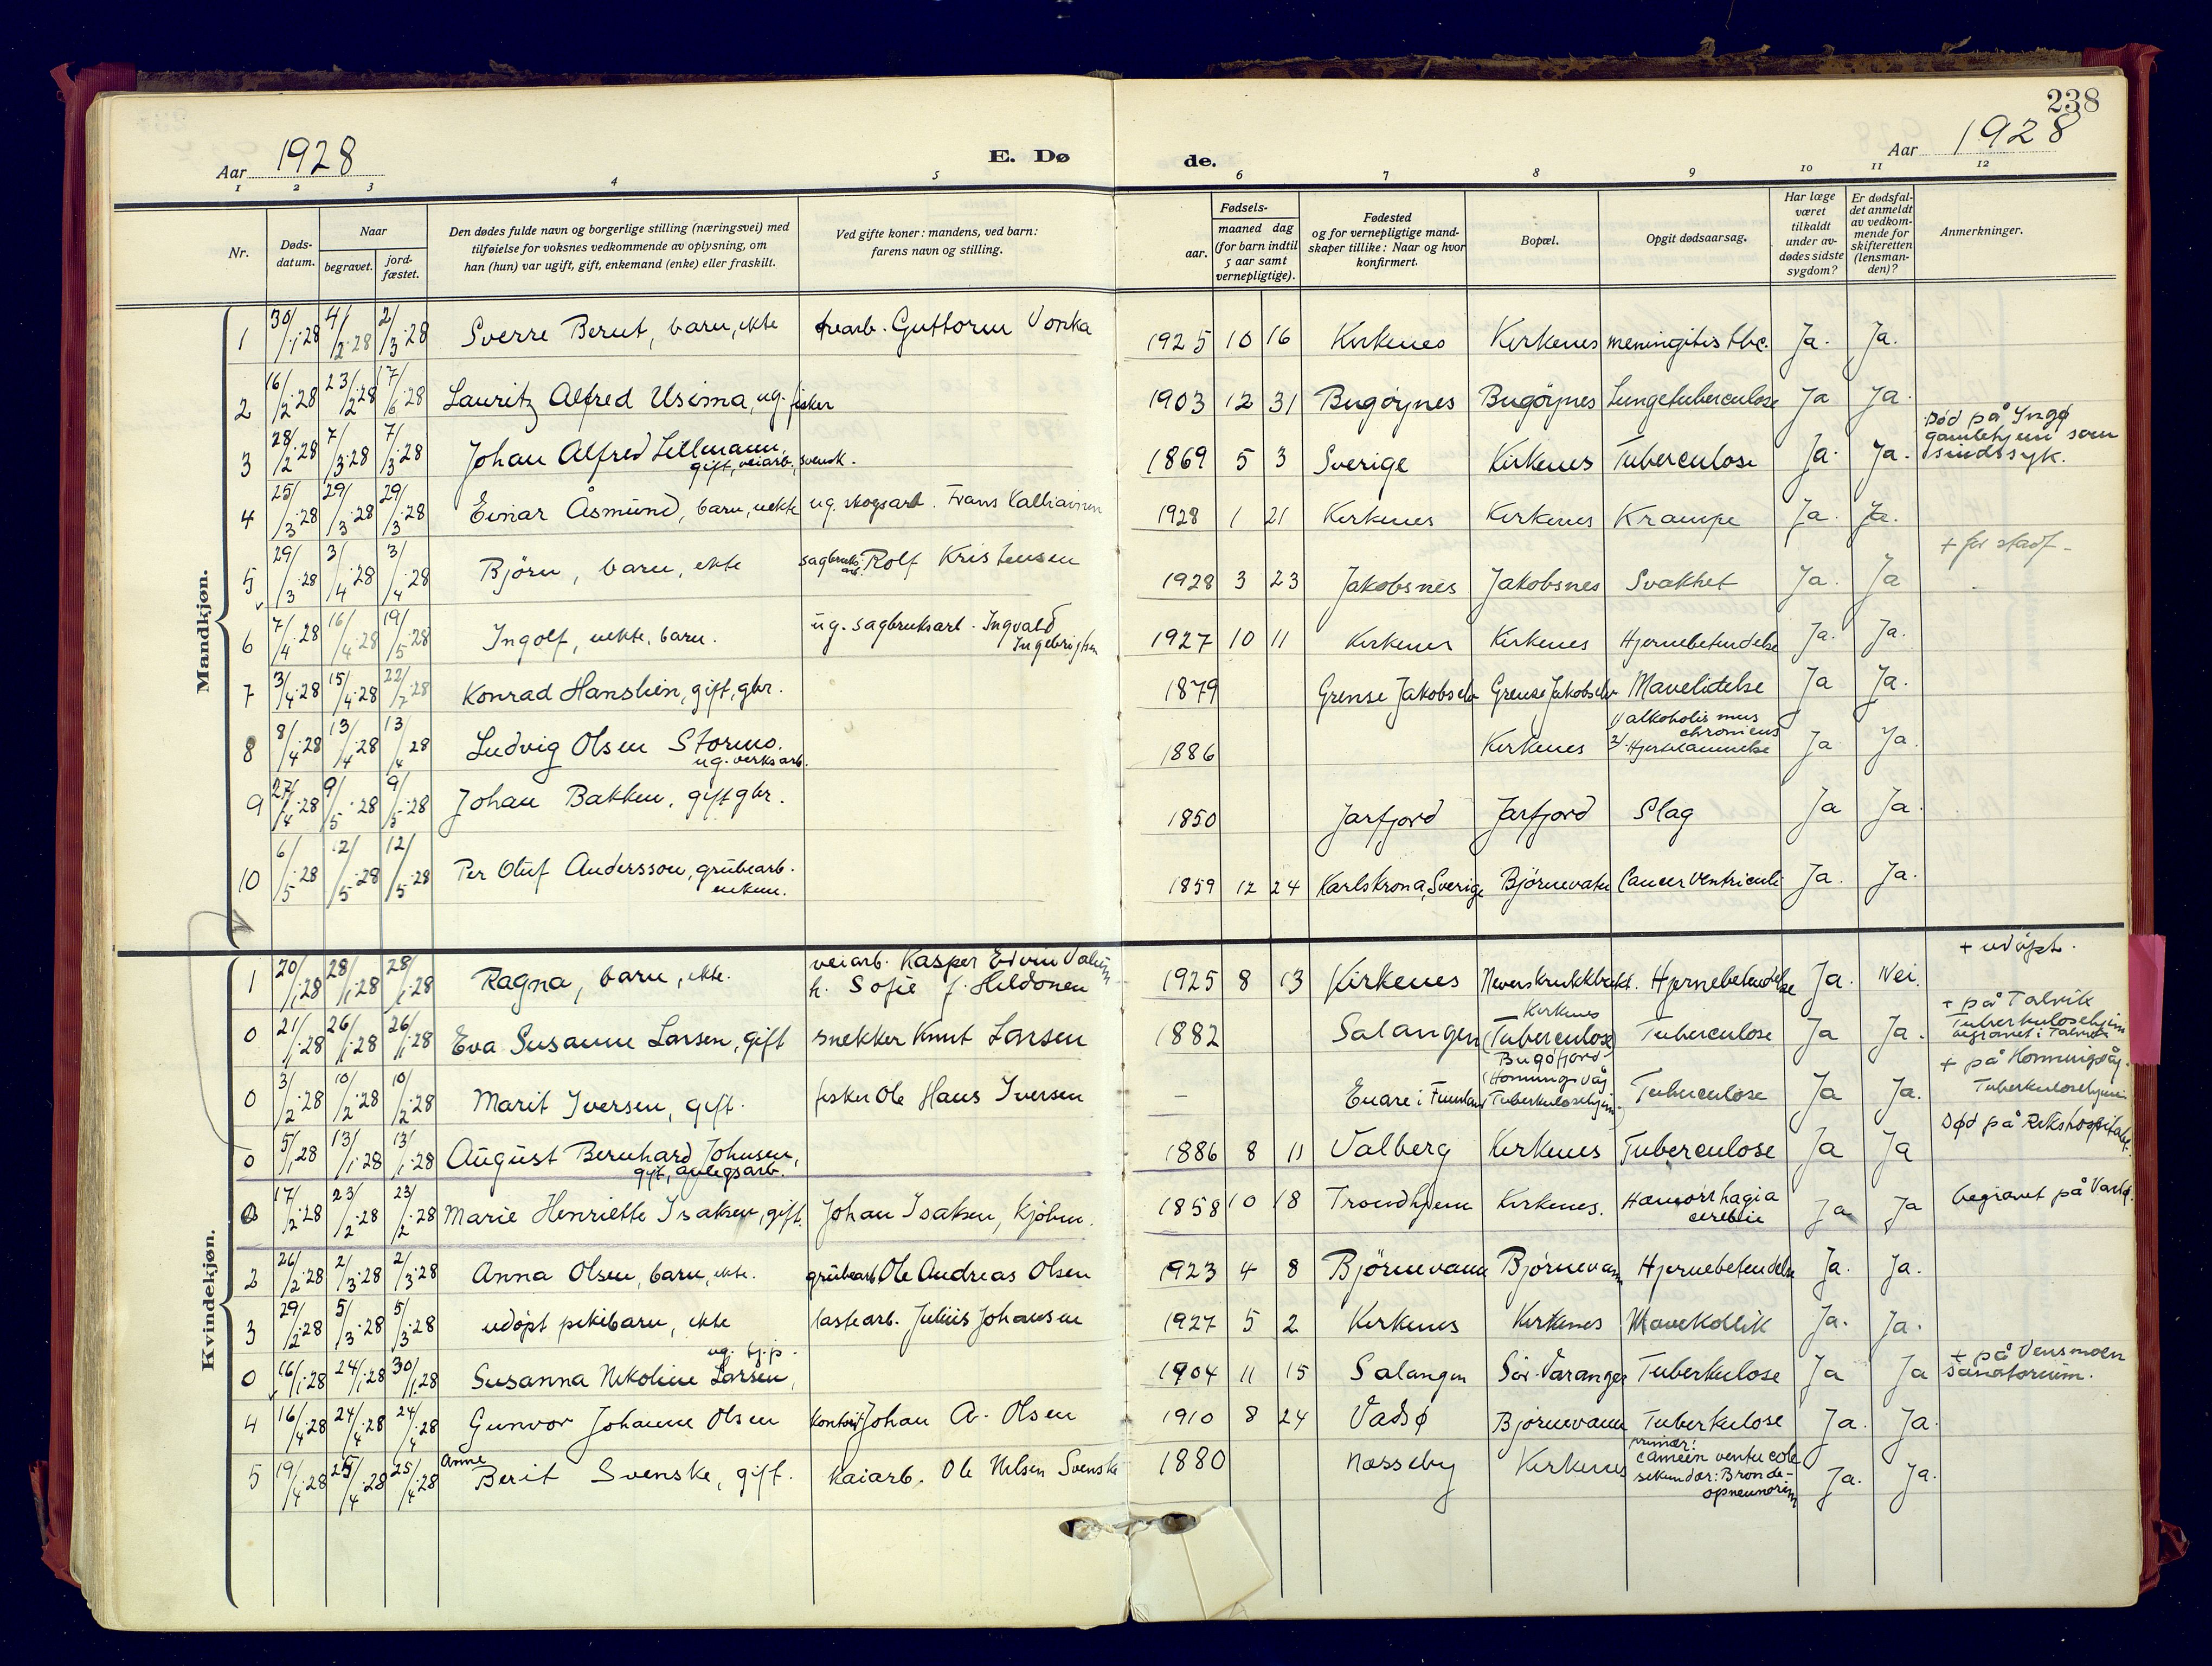 238
Aar 1928
E. Dø
de.
Aar 1928
1 2 3 4 5 6 7 8 9 10 11 12
Nr.
Døds-
datum.
Naar
begravet.
jord-
fæstet.
Den dødes fulde navn og borgerlige stilling (næringsvei) med
tilføielse for voksnes vedkommende av oplysning, om
han (hun) var ugift, gift, enkemand (enke) eller fraskilt.
Ved gifte koner: mandens, ved barn:
farens navn og stilling.
Fødsels-
aar.
maaned dag
(for barn indtil
5 aar samt
vernepligtige).
Fødested
og for vernepligtige mand-
skaper tillike: Naar og hvor
konfirmert.
Bopæl.
Opgit dødsaarsag.
Har læge
været
tilkaldt
under av-
dødes sidste
sygdom?
Er dødsfal-
det anmeldt
av vedkom-
mende for
skifteretten
(lensman-
den)?
Anmerkninger.
Mandkjøn.
1 30/1-28 4/2-28 2/3-28 Sverre Berut, barn, ekte Guttorm Vonka 1925 10 16 Kirkenes Kirkenes meningitis tbc. Ja. Ja.
2 16/2-28 23/2-28 17/6-28 Lauritz Alfred Usima, ug. fisker 1903 12 31 Bugøynes Bugøynes Lungetuberculose Ja Ja.
3 28/2-28 7/3-28 7/3-28 Johan Alfred
gift, veiarb., svensk. 1869 5 3 Sverige Kirkenes Tuberculose Ja. Ja.
Død på Ingø
gamlehjem som
sindssyk.
4 25/3-28 29/3-28 29/3-28 Einar Åsmund, barn, uekte ug. skogsarb. Frans 1928 1 21 Kirkenes Kirkenes Krampe Ja. Ja.
5 29/3-28 3/4-28 3/4-28 Björn, barn, ekte sagbruks-
arb. Rolf Kristensen 1928 3 23 Jakobsnes Jakobsnes Svakhet Ja. Ja
+ før stadf-
6 7/4-28 16/4-28 19/5-28 Ingolf, uekte, barn. ug. sagbruksarb. Ingvald
Ingebrigtsen 1927 10 11 Kirkenes Kirkenes Hjernebetendelse Ja. Ja.
7 3/4-28 15/4-28 22/7-28 Konrad Hanslien, gift, gbr. 1879 Grense Jakobselv Grense Jakobselv Mavelidelse Ja Ja.
8 8/4-28 13/4-28 13/4 28 Ludvig Olsen Stormo.
ug. verksarb. 1886 Kirkenes 1/ alkoholismus
chronicus
2/ Hjertelammelse Ja Ja.
9 27/4-28 9/5-28 9/5-28 Johan Bakken, gift gbr. 1850 Jarfjord Jarfjord Slag Ja Ja.
10 6/5-28 12/5-28 12/5-28 Per Oluf Andersson, grubearb.
enkem. 1859 12 24 Karlskrona, Sverige Björnevatn Cancer ventriculi Ja. Ja.
Kvindekjøn.
1 20/1-28 28/1-28 28/1-28 Ragna, barn, ekte. veiarb. Kasper Edvin
h. Sofie f. Hildonen 1925 8 13 Kirkenes Hjernebetendelse Ja. Nei.
+ udöpt.
0 21/1-28 26/1-28 26/1-28 Eva Susanne Larsen, gift snekker Knut Larsen 1882 Salangen Kirkenes
(Tuberculose) Tuberculose Ja Ja.
+ på Talvik
Tuberkulosehjem
begravet i Talvik
0 3/2-28 10/2-28 10/2-28 Marit Iversen, gift. fisker Ole Hans Iversen - Enare i Finnland Bugöfjord
(Honningsvåg
Tuberkulosehjem Tuberculose Ja Ja.
+ på Honningsvåg.
Tuberkulosehjem
0 5/1-28 13/1-28 13/1-28 August Bernhard Johnsen,
gift, anlegsarb. 1886 8 11 Valberg Kirkenes Tuberculose Ja Ja
Død på Rikshospitalet.
0 17/2-28 23/2-28 23/2-28 Marie Henriette Isaksen, gift. Johan Isaksen, kjöbm. 1858 10 18 Trondhjem Kirkenes. Hæmorrhagia
cerebri Ja Ja
begravet på Vardø.
2 26/2-28 2/3-28 2/3-28 Anna Olsen, barn, ekte. grubearb Ole Andreas Olsen 1923 4 8 Björnevann Björnevann Hjernebetendelse Ja. Ja.
3 29/2-28 5/3-28 5/3-28 udöpt pikebarn, ekte lastearb. Julius Johansen 1927 5 2 Kirkenes Kirkenes Mavekollik Ja. Ja.
0 16/1-28 24/1-28 30/1-28 Susanna Nikoline Larsen, ug. tj.p. 1904 11 15 Salangen Sör-Varanger Tuberkulose Ja Ja
+ på Vensmoen
sanatorium.
4 16/4-28 24/4-28 24/4-28 Gunvor Johanne Olsen Johan A. Olsen 1910 8 24 Vadsø Björnevann Tuberkulose Ja. Ja.
5 19/4-28 25/4-28 25/4-28 Anne
Berit Svenske, gift. kaiarb. Ole Nilsen Svenske 1880 Nesseby Kirkenes primær:
sekundær: Ja. Ja.